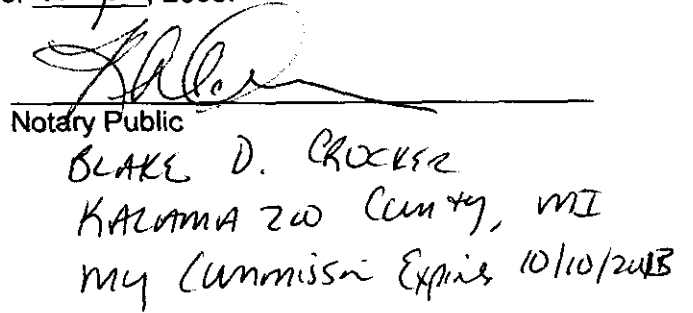 Notary Public
BLAKE D. CROCKER
KALAMAZOO County, MI
My Commission Expires 10/10/2013